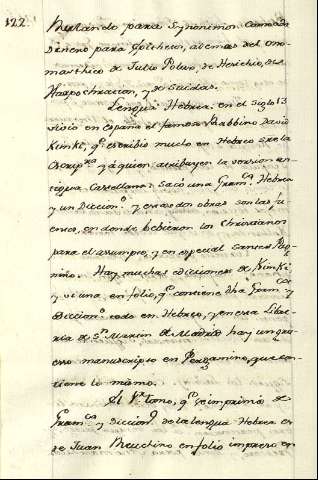 122
para Synonimos
Dineno para ademas del Ono-
masthico de Julio Polux, de Hesichio, de
Harpochracion, y de Suidas.
Lengua Hebrea. en el siglo 13
vivio en españa el famoso Rabbino David
Kimki, qe. escribio mucho en Hebreo sre la
y á quien atribuyen la version an-
tigua Castellana. Sacó una Gramca. Hebrea
y un Dicciono. y estas dos obras son las fu
entes, en donde bebieron los Christianos
para el assumpto, y en especial Santes Pag-
nino. Hay muchas ediciones de Kimki
y vi una en folio, qe. contiene dha Gramca. y
Dicciono. todo en Hebreo, y en esta Libre-
ria de Sn. Martin de Madrid hay un gru
esso manuscripto en Pergamino, que con-
tiene lo mismo.
El tomo, qe. se imprimió de
Gramca. y Dicciono. de la lengua Hebrea es
de Juan Reuchlino en folio impreso en